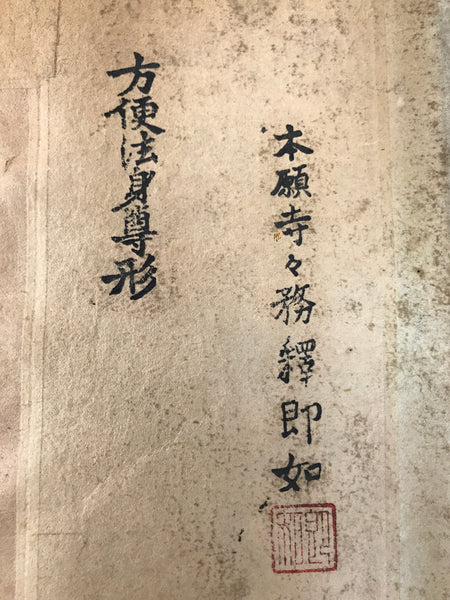 本願寺々務釋即如
方便法身尊形